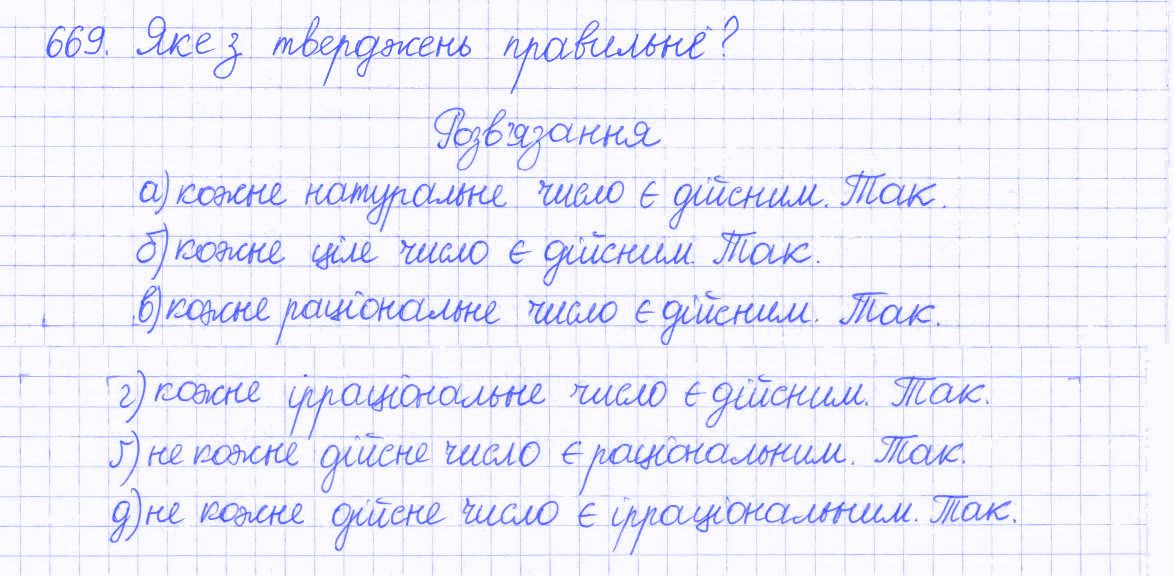 669. Яке з тверджень правильне?
Розв'язання
а) кожне натуральне число є дійсним. Так.
б) кожне ціле число є дійсним. Так.
в) кожне раціональне число є дійсним. Так.
г) кожне ірраціональне число є дійсним. Так.
ґ) не кожне дійсне число є раціональним. Так.
д) не кожне дійсне число є ірраціональним. Так.